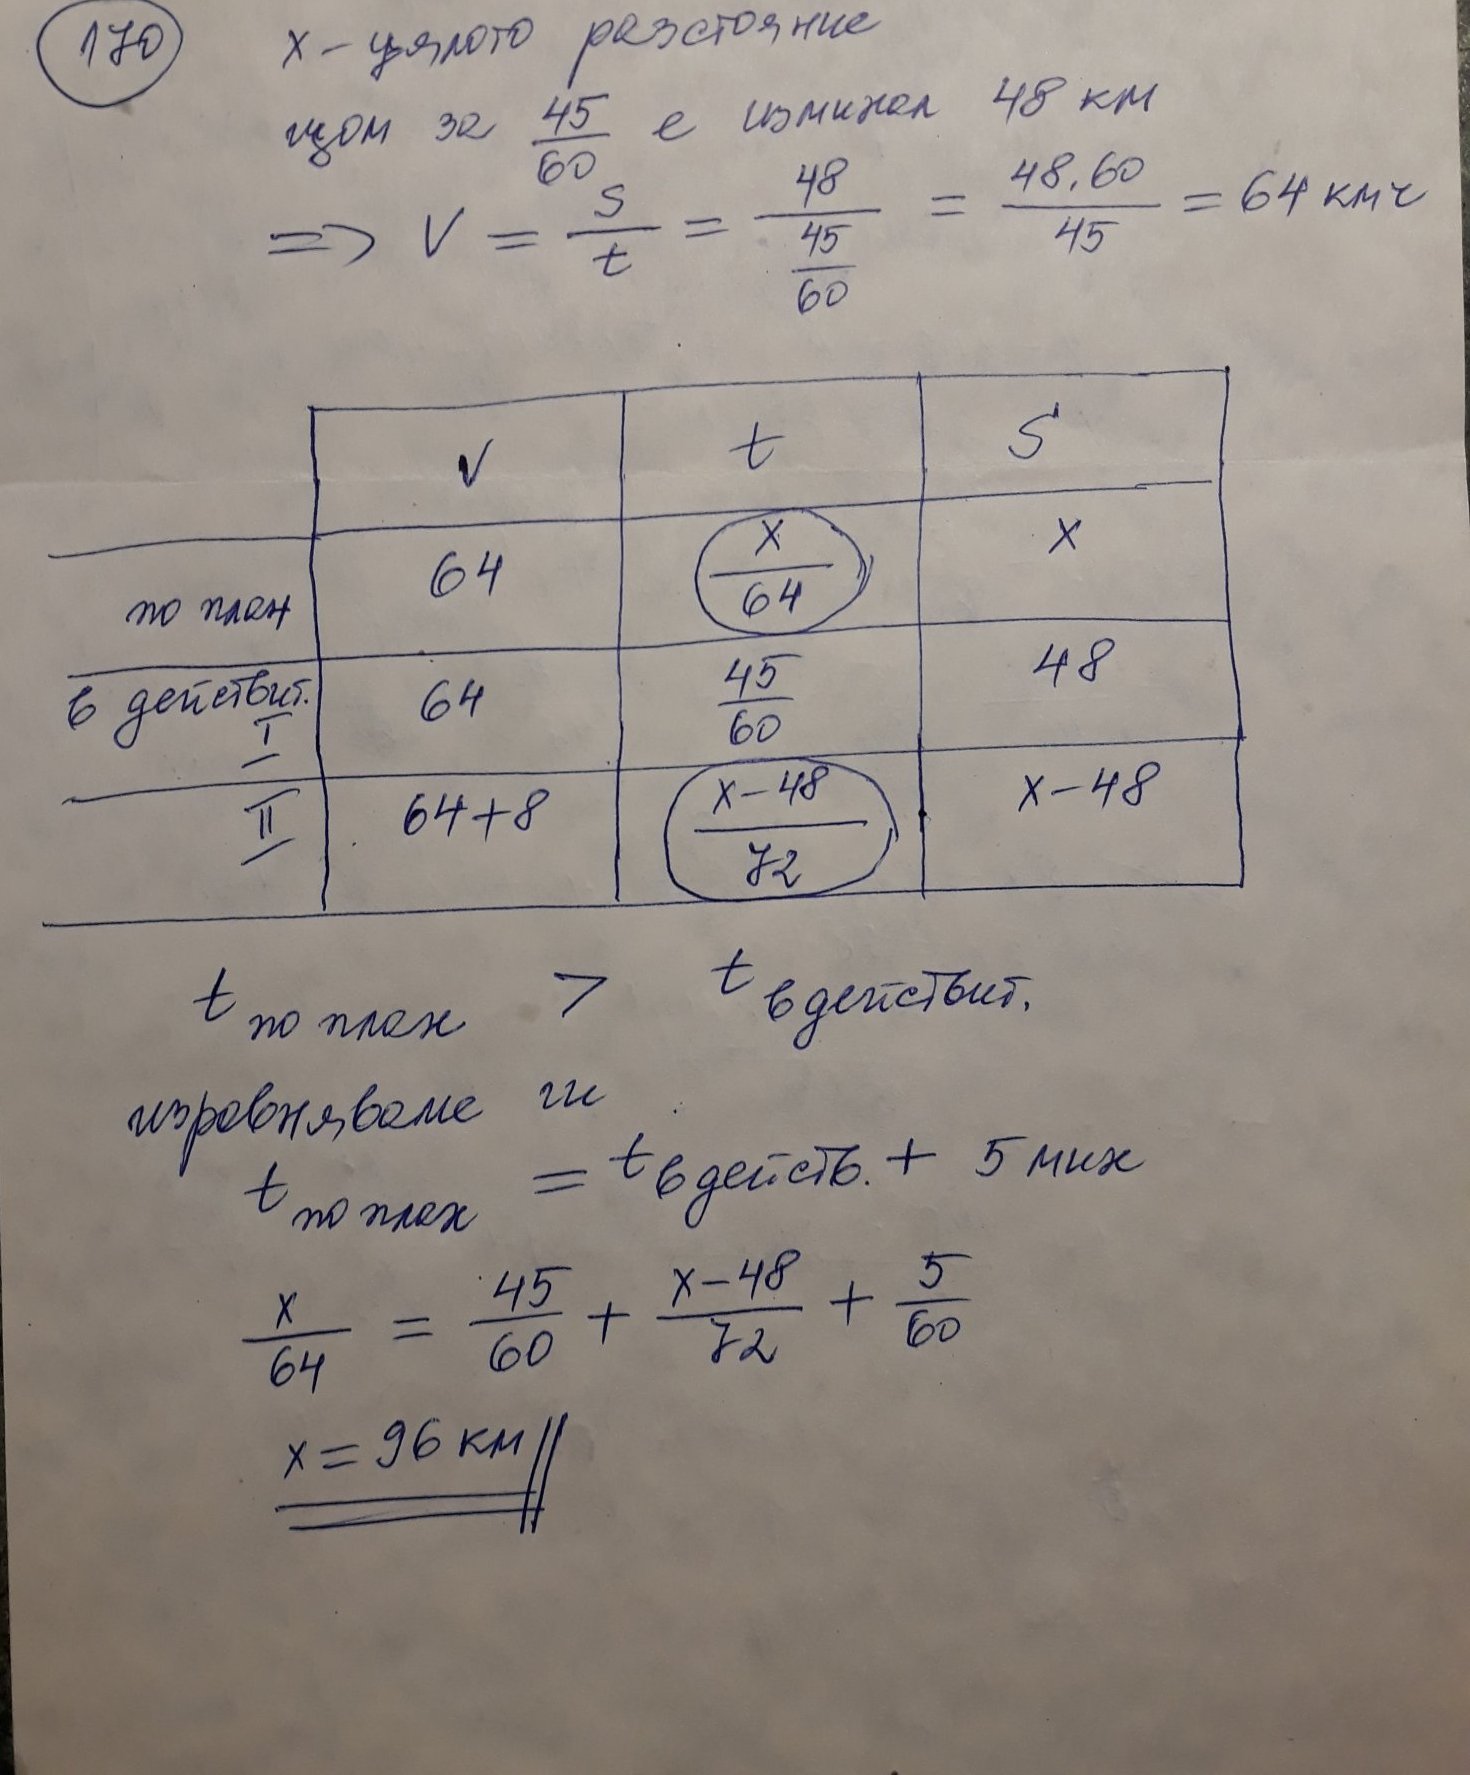 170 x – цялото разстояние
щом за 45/60 е изминал 48 км
=> V = S/t = 48/(45/60) = 48.60/45 = 64 кмч
V t S
по план 64 x/64 x
в действит. I 64 45/60 48
II 64+8 x–48/72 x–48
t по план > t в действит.
изравняваме ги
t по план = t в действ. + 5 мин
x/64 = 45/60 + x–48/72 + 5/60
x = 96 км